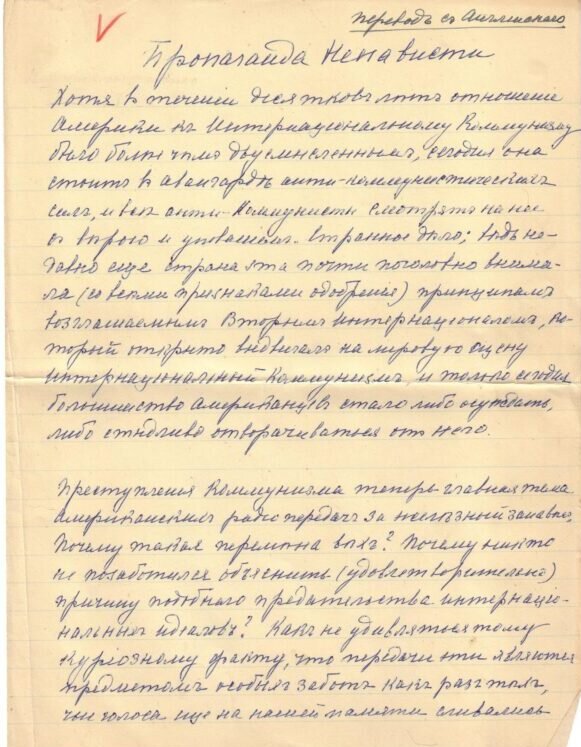 Переводъ съ Англійскаго
Пропаганда Ненависти
Хотя въ теченіи десятковъ лѣтъ отношеніе
Америки къ Интернаціональному Коммунизму
было болѣе чѣмъ двусмысленнымъ, сегодня она
стоитъ въ авангардѣ анти-коммунистическихъ
силъ, и всѣ анти-Коммунисты смотрятъ на нее
съ вѣрою и упованіемъ. Странное дѣло; вѣдь не-
давно еще страна эта почти поголовно внима-
ла (со всѣми признаками одобренія) принципамъ
возглашаемымъ Вторымъ Интернаціоналомъ, ко-
торый открыто выдвигалъ на міровую сцену
Интернаціональный Коммунизмъ, и только сегодня
большинство Американцевъ стало либо осуждать,
либо стыдливо отворачиваться отъ него.
Преступленія Коммунизма теперь главная тема
Американскихъ радіо передачъ за желѣзный занавѣсъ.
Почему такая перемѣна вѣхъ? Почему никто
не позаботился объяснить (удовлетворительно)
причину подобнаго предательства интернаці-
нальныхъ идеаловъ? Какъ не удивляться тому
курьозному факту, что передачи эти являются
предметомъ особыхъ заботъ какъ разъ тѣхъ,
чьи голоса еще на нашей памяти сливались